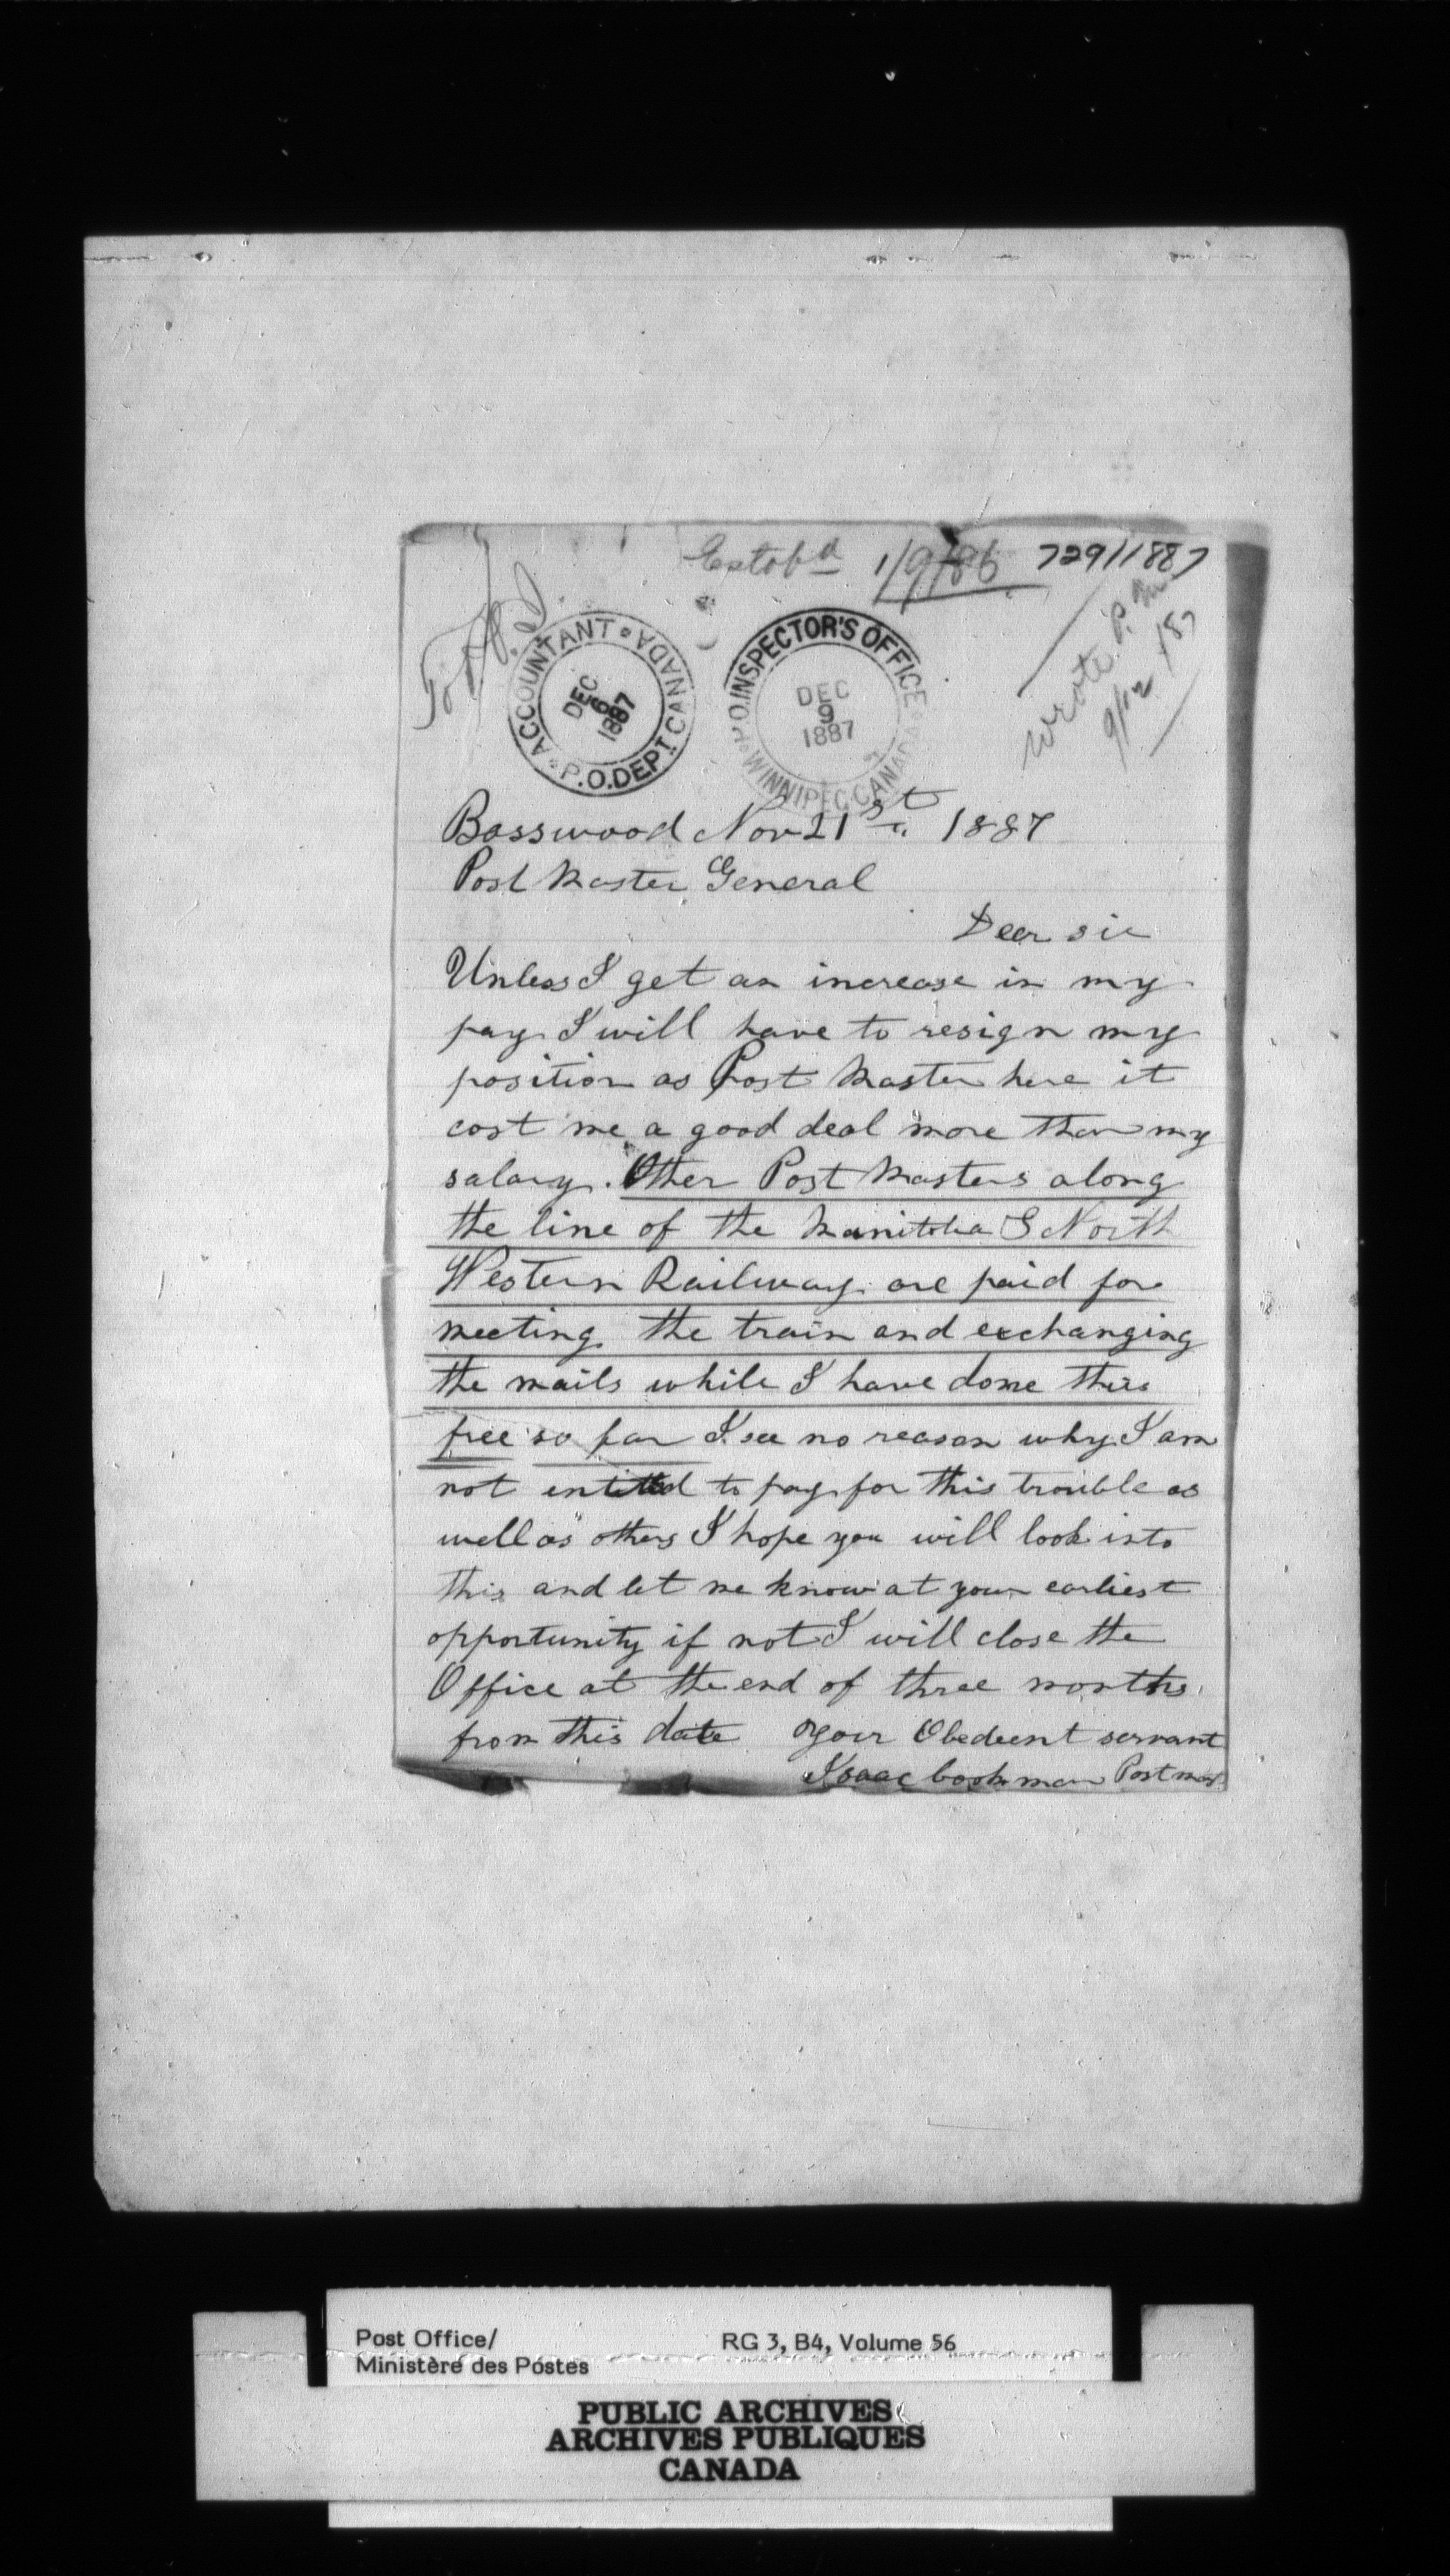 Estabd 1/9/86 729/1887
ACCOUNTANT CANADA
P.O. DEPT
DEC
6
1887
P.O. INSPECTOR'S OFFICE
WINNIPEG CANADA
DEC
9
1887
Wrote P.M.
9/12/87
Basswood Nov 21st 1887
Post Master General
Dear sir
Unless I get an increase in my
pay I will have to resign my
position as Post Master here it
cost me a good deal more than my
salary. Other Post Masters along
the line of the Manitoba & North
Western Railway are paid for
meeting the train and exchanging
the mails while I have done this
free so far I see no reason why I am
not entitled to pay for this trouble as
well as others I hope you will look into
this and let me know at your earliest
opportunity if not I will close the
Office at the end of three months
from this date your Obedient servant
Isaac Cookman Postmas
Post Office/
Ministère des Postes
RG 3, B4, Volume 56
PUBLIC ARCHIVES
ARCHIVES PUBLIQUES
CANADA